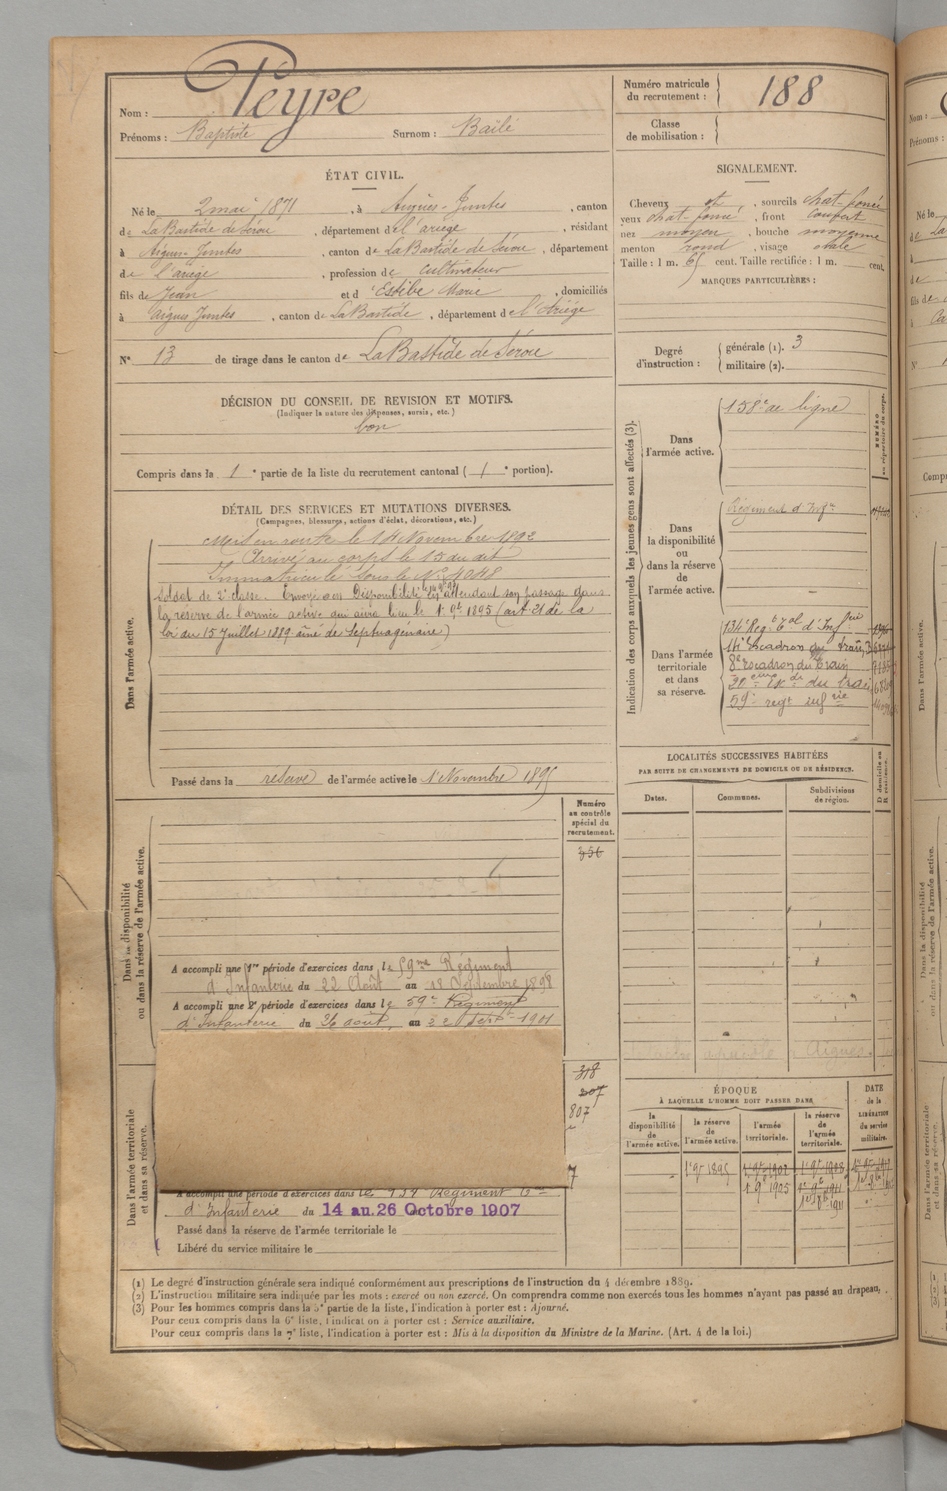 Nom : Peyre
Prénoms : Baptiste Surnom : Baïlé
Numéro matricule du recrutement : 188
Classe de mobilisation :
ÉTAT CIVIL.
Né le 2 mai 1871, à Aigues-Juntes, canton
de La Bastide de Sérou, département de l'ariège, résidant
à Aigues-Juntes, canton de La Bastide de Sérou, département
de l'ariège, profession de cultivateur
fils de Jean et d'Estèbe Marie, domiciliés
à aigues Juntes, canton de La Bastide, département de l'Ariège
N° 13 de tirage dans le canton de La Bastide de Sérou
SIGNALEMENT.
Cheveux ct, sourcils chat. foncé
yeux chat foncé, front couvert
nez moyen, bouche moyenne
menton rond, visage ovale
Taille : 1 m. 65 cent. Taille rectifiée : 1 m. cent.
MARQUES PARTICULIÈRES :
Degré d'instruction : générale (1). 3
militaire (2).
DÉCISION DU CONSEIL DE REVISION ET MOTIFS.
(Indiquer la nature des dispenses, sursis, etc.)
bon
Compris dans la 1e partie de la liste du recrutement cantonal ( 1e portion).
DÉTAIL DES SERVICES ET MUTATIONS DIVERSES.
(Campagnes, blessures, actions d'éclat, décorations, etc.)
Dans l'armée active.
Mis en route le 14 Novembre 1892
Arrivé au corps le 15 du dit
Immatriculé sous le N° 4048
Soldat de 2e classe. Envoyé en Disponibilité en attendant son passage dans
la réserve de l'armée active qui aura lieu le 1er 9bre 1895 (art 21 de la
loi du 15 Juillet 1889 aîné de Septuagénaire)
Passé dans la réserve de l'armée active le 1er Novembre 1895
Indication des corps auxquels les jeunes gens sont affectés (3).
NUMÉRO au répertoire du corps.
Dans l'armée active.
158e de ligne
Dans la disponibilité ou dans la réserve de l'armée active.
Régiment d'Infie
Dans l'armée territoriale et dans sa réserve.
134e Reg. Tal d'Infrie
8e Escadron du train
59e regt infrie
LOCALITÉS SUCCESSIVES HABITÉES
PAR SUITE DE CHANGEMENTS DE DOMICILE OU DE RÉSIDENCE.
Dates. Communes. Subdivisions de région. D domicile ou R résidence.
Dans la disponibilité ou dans la réserve de l'armée active.
Numéro au contrôle spécial du recrutement.
356
A accompli une 1re période d'exercices dans le 59me Régiment
d'Infanterie du 22 Août au 18 Septembre 1898
A accompli une 2e période d'exercices dans le 59e Régiment
d'Infanterie du 26 août au 22 Sept 1901
Dans l'armée territoriale et dans sa réserve.
318
207
807
7
A accompli une période d'exercices dans le 134 Régiment
d'Infanterie du 14 au 26 Octobre 1907
Passé dans la réserve de l'armée territoriale le
Libéré du service militaire le
ÉPOQUE
À LAQUELLE L'HOMME DOIT PASSER DANS
la disponibilité de l'armée active. la réserve de l'armée active. l'armée territoriale. la réserve de l'armée territoriale.
DATE de la LIBÉRATION du service militaire.
1er 9bre 1895
(1) Le degré d'instruction générale sera indiqué conformément aux prescriptions de l'instruction du 4 décembre 1889.
(2) L'instruction militaire sera indiquée par les mots : exercé ou non exercé. On comprendra comme non exercés tous les hommes n'ayant pas passé au drapeau.
(3) Pour les hommes compris dans la 5e partie de la liste, l'indication à porter est : Ajourné.
Pour ceux compris dans la 6e liste, l'indication à porter est : Service auxiliaire.
Pour ceux compris dans la 7e liste, l'indication à porter est : Mis à la disposition du Ministre de la Marine. (Art. 4 de la loi.)